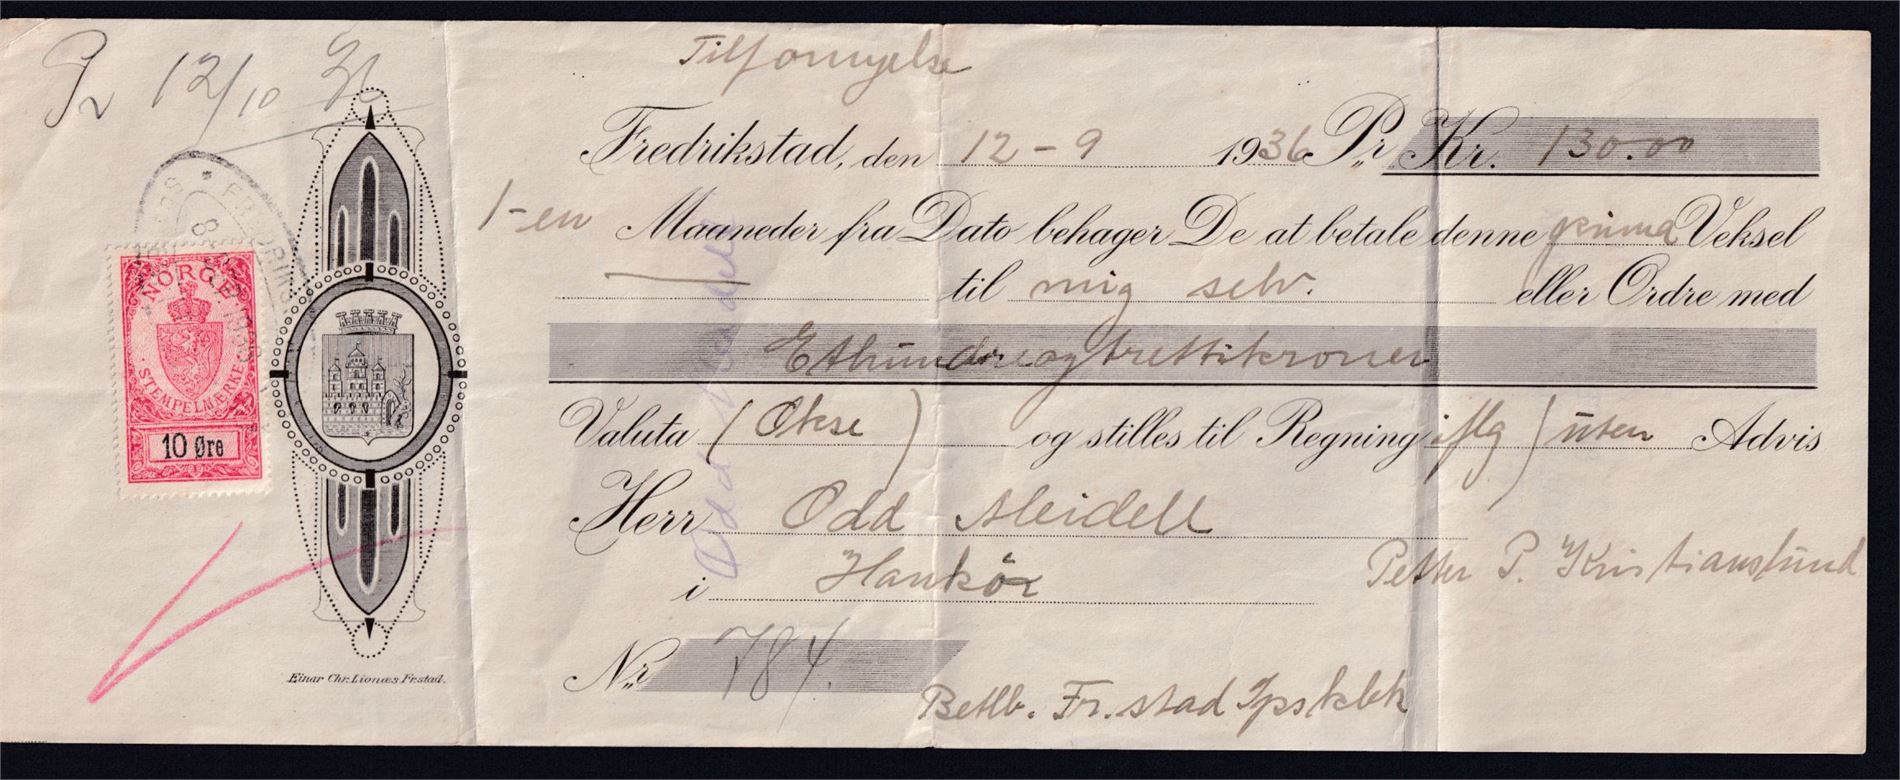 Tilfornyelse
Pr 12/10 36
Fredrikstad, den 12-9 1936 Pr. Kr. 130.00
1-en Maaneder fra Dato behager De at betale denne prima Veksel
til mig selv. eller Ordre med
Ethundre og trettikroner
Valuta (Okse) og stilles til Regning iflg) uten Advis
Herr Odd Meidell
i Hankø
Petter P. Kristianslund
Nr. 784.
Betlb. Fr.stad Spskbk
Odd Meidell
NORGE
STEMPELMÆRKE
10 Øre
Einar Chr. Lionæs Fr.stad.